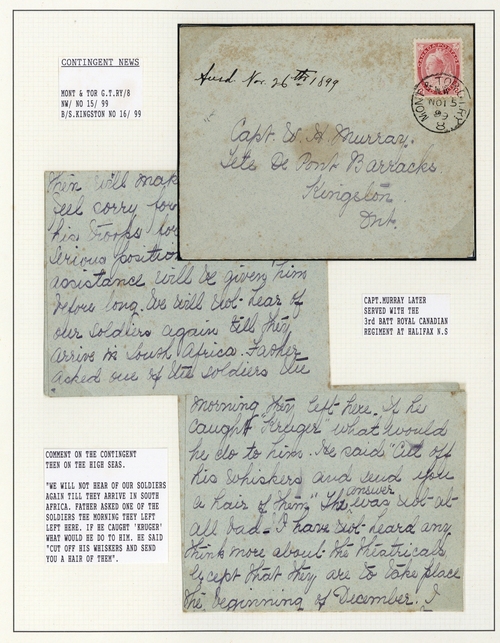 CONTINGENT NEWS
MONT & TOR G.T.RY/8
NW/ NO 15/ 99
B/S.KINGSTON NO 16/ 99
Nov. 26th 1899
MONT. & TOR. G.T.RY
NO 15
99
8
Capt. W. A. Murray.
Tete De Pont Barracks.
Kingston.
Ont.
then will mak
feel sorry for
his troops for
serious position
assistance will be given him
before long. We will not hear of
our soldiers again till they
arrive in South Africa. Father
asked one of the soldiers the
CAPT.MURRAY LATER
SERVED WITH THE
3rd BATT ROYAL CANADIAN
REGIMENT AT HALIFAX N.S
morning they left here. If he
caught "Kruger" what would
he do to him. He said "Cut off
his whiskers and send you
a hair of them." The answer was not at
all bad. I have not heard any
think more about the theatricals
except that they are to take place
the beginning of December. I
COMMENT ON THE CONTINGENT
THEN ON THE HIGH SEAS.
"WE WILL NOT HEAR OF OUR SOLDIERS
AGAIN TILL THEY ARRIVE IN SOUTH
AFRICA. FATHER ASKED ONE OF THE
SOLDIERS THE MORNING THEY LEFT
LEFT HERE. IF HE CAUGHT 'KRUGER'
WHAT WOULD HE DO TO HIM. HE SAID
"CUT OFF HIS WHISKERS AND SEND
YOU A HAIR OF THEM".